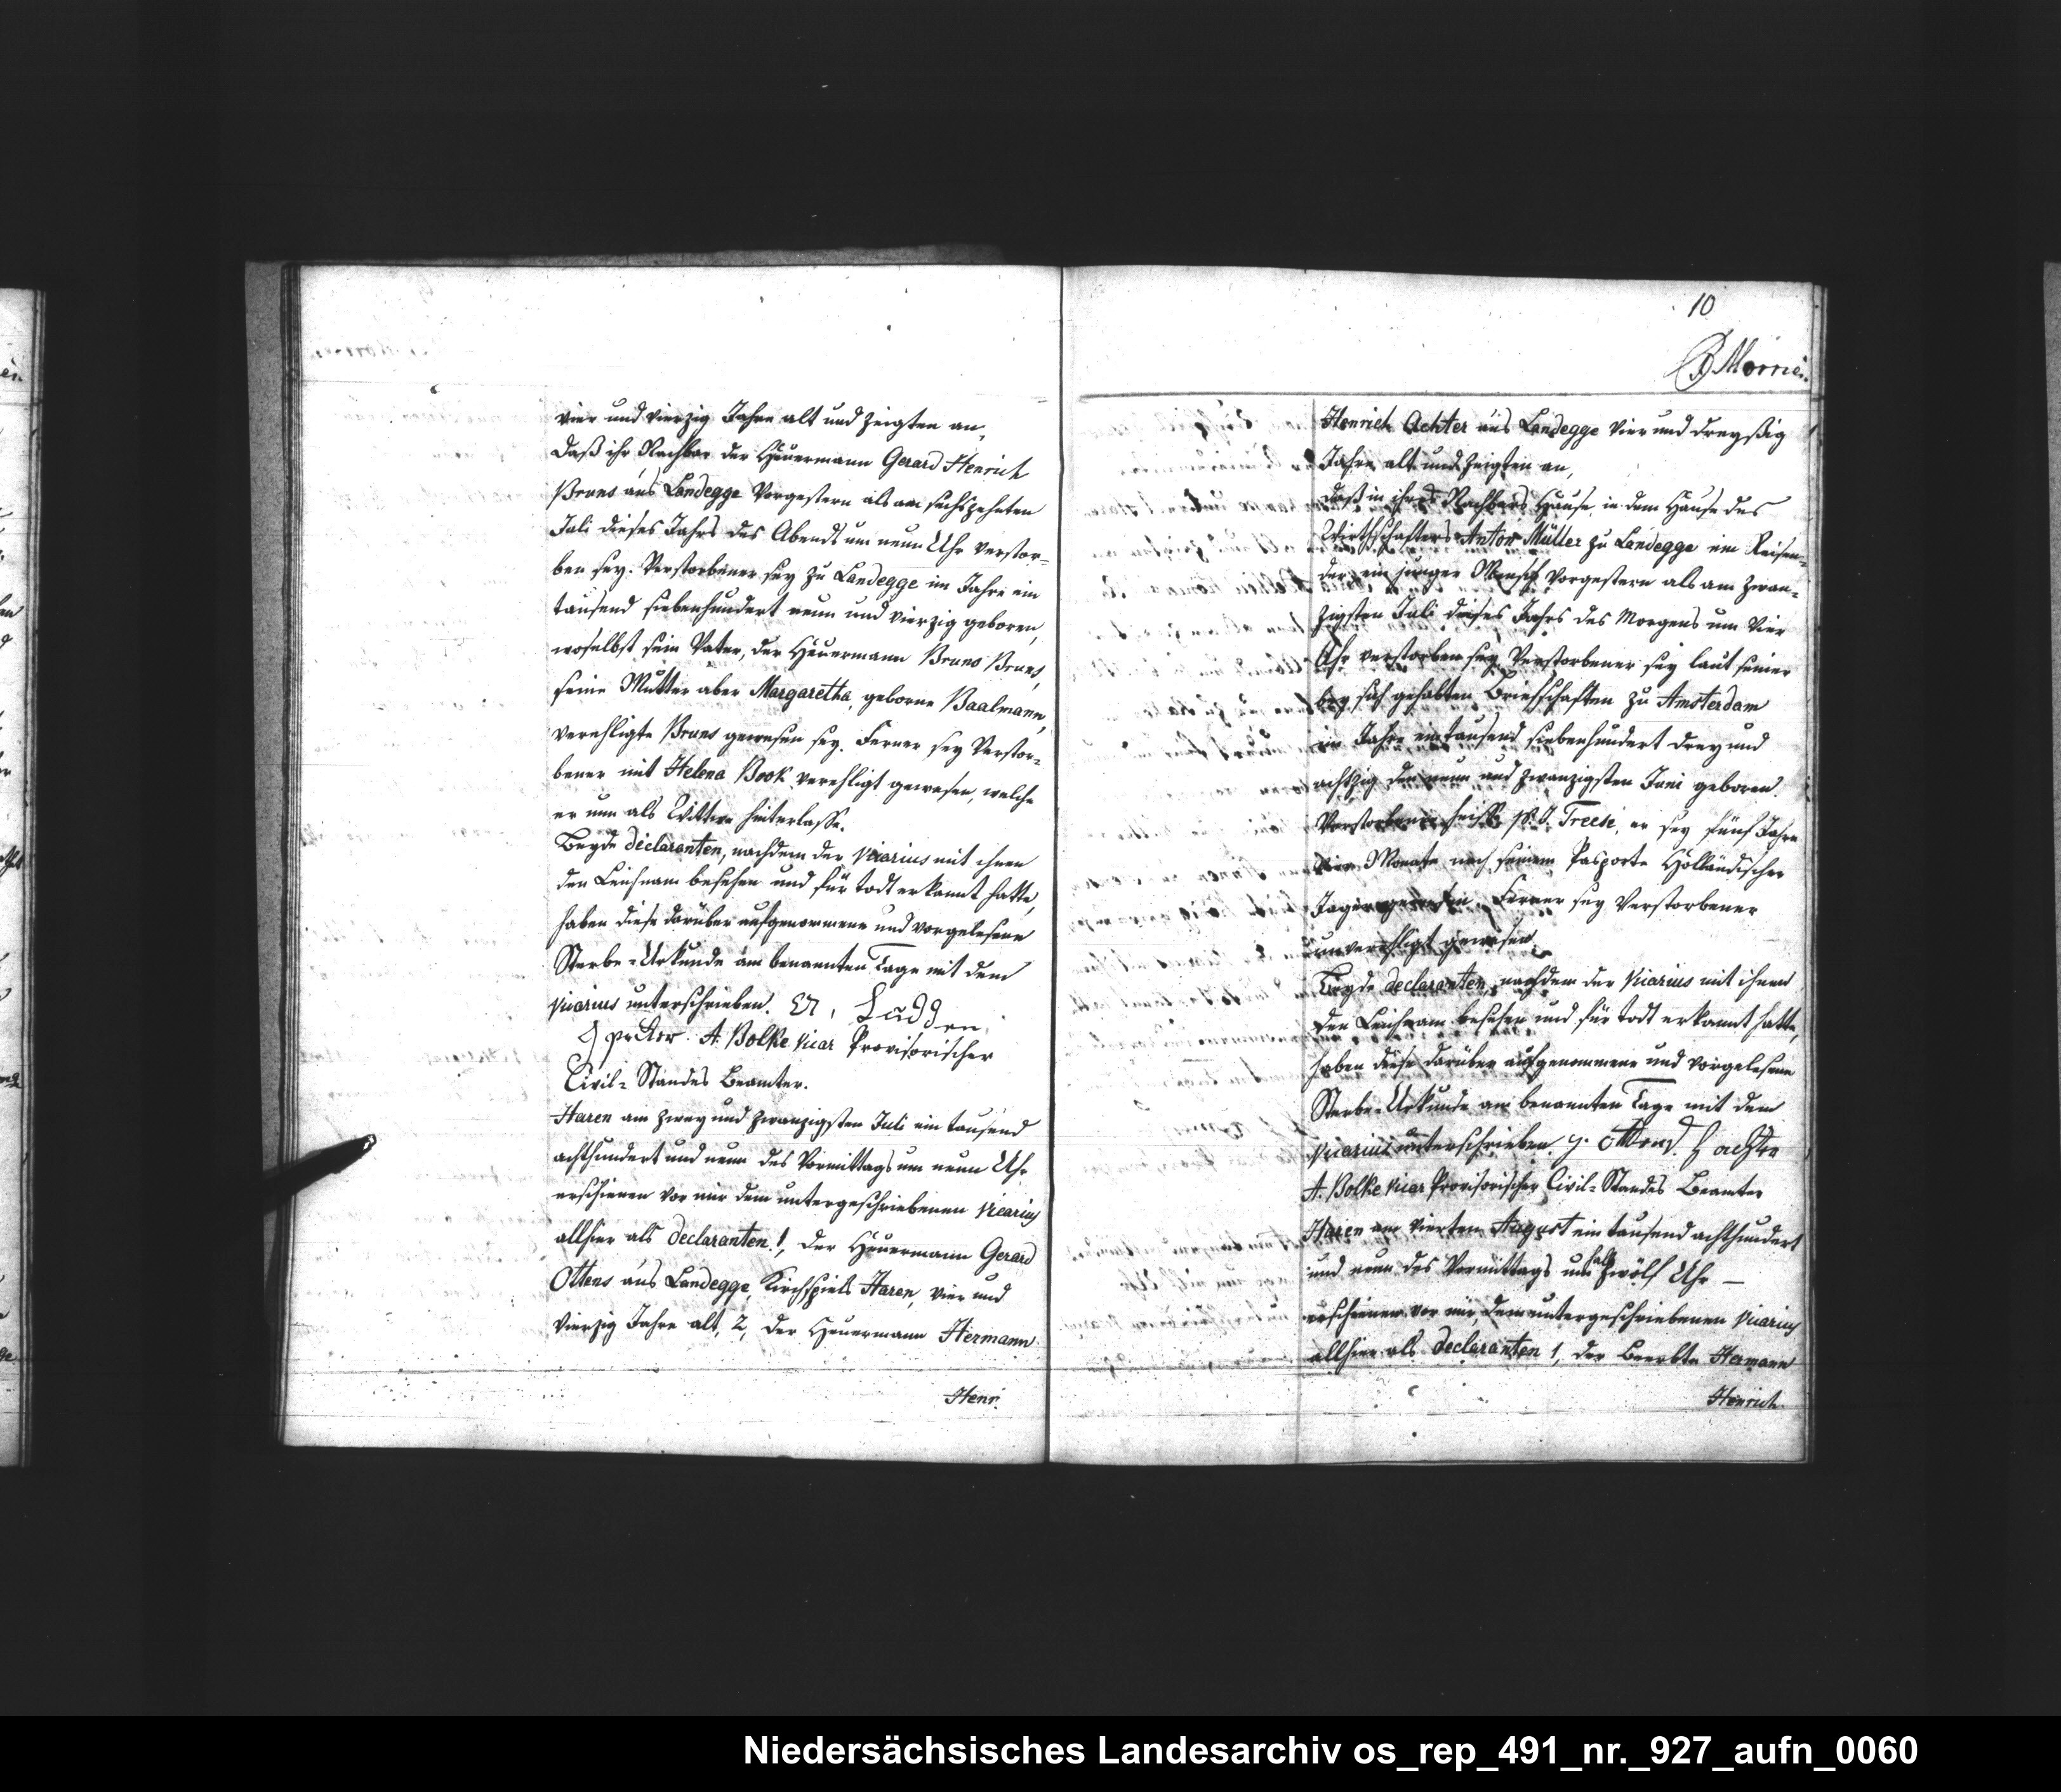 vier und vierzig Jahre alt und zeigten an,
daß ihr Nachbar der Heuermann Gerard Henrich
Bruns aus Landegge vorgestern als am sechszehnten
Juli dieses Jahrs des Abends um neun Uhr verstor=
ben sey. Verstorbener sey zu Landegge im Jahre ein
tausend siebenhundert neun und vierzig geboren,
woselbst sein Vater, der Heuermann Bruno Bruns,
seine Mutter aber Margaretha, geborne Baalmann,
verehligte Bruns gewesen sey. Ferner sey Verstor=
bener mit Helena Book verehligt gewesen, welche
er nun als Wittwe hinterlasse.
Beyde declaranten, nachdem der Vicarius mit ihnen
den Leichnam besehen und für todt erkannt hatte,
haben diese darüber aufgenommene und vorgelesene
Sterbe=Urkunde am benannten Tage mit dem
Vicarius unterschrieben. Ludden
A. Bolke Vicar Provisorischer
Civil=Standes Beamter.
Haren am zwey und zwanzigsten Juli ein tausend
achthundert und neun des Vormittags um neun Uhr
erschienen vor mir dem untergeschriebenen Vicarius
allhier als declaranten 1, der Heuermann Gerard
Ottens aus Landegge, Kirchspiels Haren, vier und
vierzig Jahre alt, 2, der Heuermann Hermann
Henr.
10
Morrien
Henrich Achter aus Landegge vier und dreyßig
Jahre alt und zeigten an,
daß in ihres Nachbars Hause, in dem Hause des
Wirthschafters Anton Müller zu Landegge ein Reisen=
der, ein junger Mensch vorgestern als am zwan=
zigsten Juli dieses Jahrs des Morgens um vier
Uhr verstorben sey. Verstorbener sey laut seiner
bey sich gehabten Briefschaften zu Amsterdam
im Jahre eintausend siebenhundert drey und
achtzig den neun und zwanzigsten Juni geboren.
Verstorbener heiße P. J. Treese, er sey fünf Jahre
vier Monate nach seinem Pasporte Holländischer
Jager gewesen. Ferner sey Verstorbener
unverehligt gewesen.
Beyde declaranten, nachdem der Vicarius mit ihnen
den Leichnam besehen und für todt erkannt hatte,
haben diese darüber aufgenommene und vorgelesene
Sterbe=Urkunde am benannten Tage mit dem
Vicarius unterschrieben. G. Ottens. H Achter
A. Bolke Vicar Provisorischer Civil=Standes Beamter
Haren am vierten August ein tausend achthundert
und neun des Vormittags um halb zwölf Uhr —
erschienen vor mir, dem untergeschriebenen Vicarius
allhier als declaranten 1, der Beerbte Hermann
Henrich
Niedersächsisches Landesarchiv os_rep_491_nr._927_aufn_0060